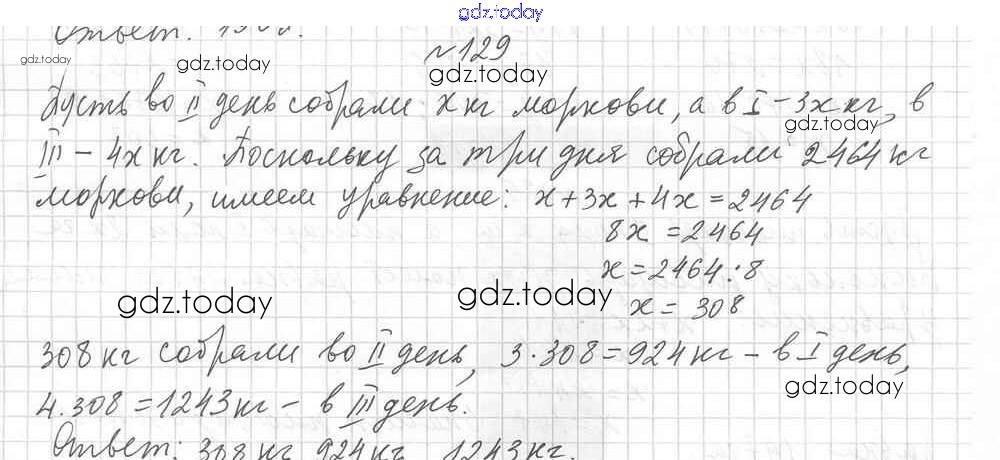 gdz.today
Ответ:
gdz.today
gdz.today
№129
gdz.today
Пусть во II день собрали x кг моркови, а в I – 3x кг, в
gdz.today
III – 4x кг. Поскольку за три дня собрали 2464 кг
моркови, имеем уравнение: x+3x+4x=2464
8x =2464
x=2464:8
x= 308
gdz.today
gdz.today
308 кг собрали во II день, 3·308=924 кг – в I день,
gdz.today
4.308=1243 кг – в III день.
Ответ: 308 кг 924 кг 1243 кг.